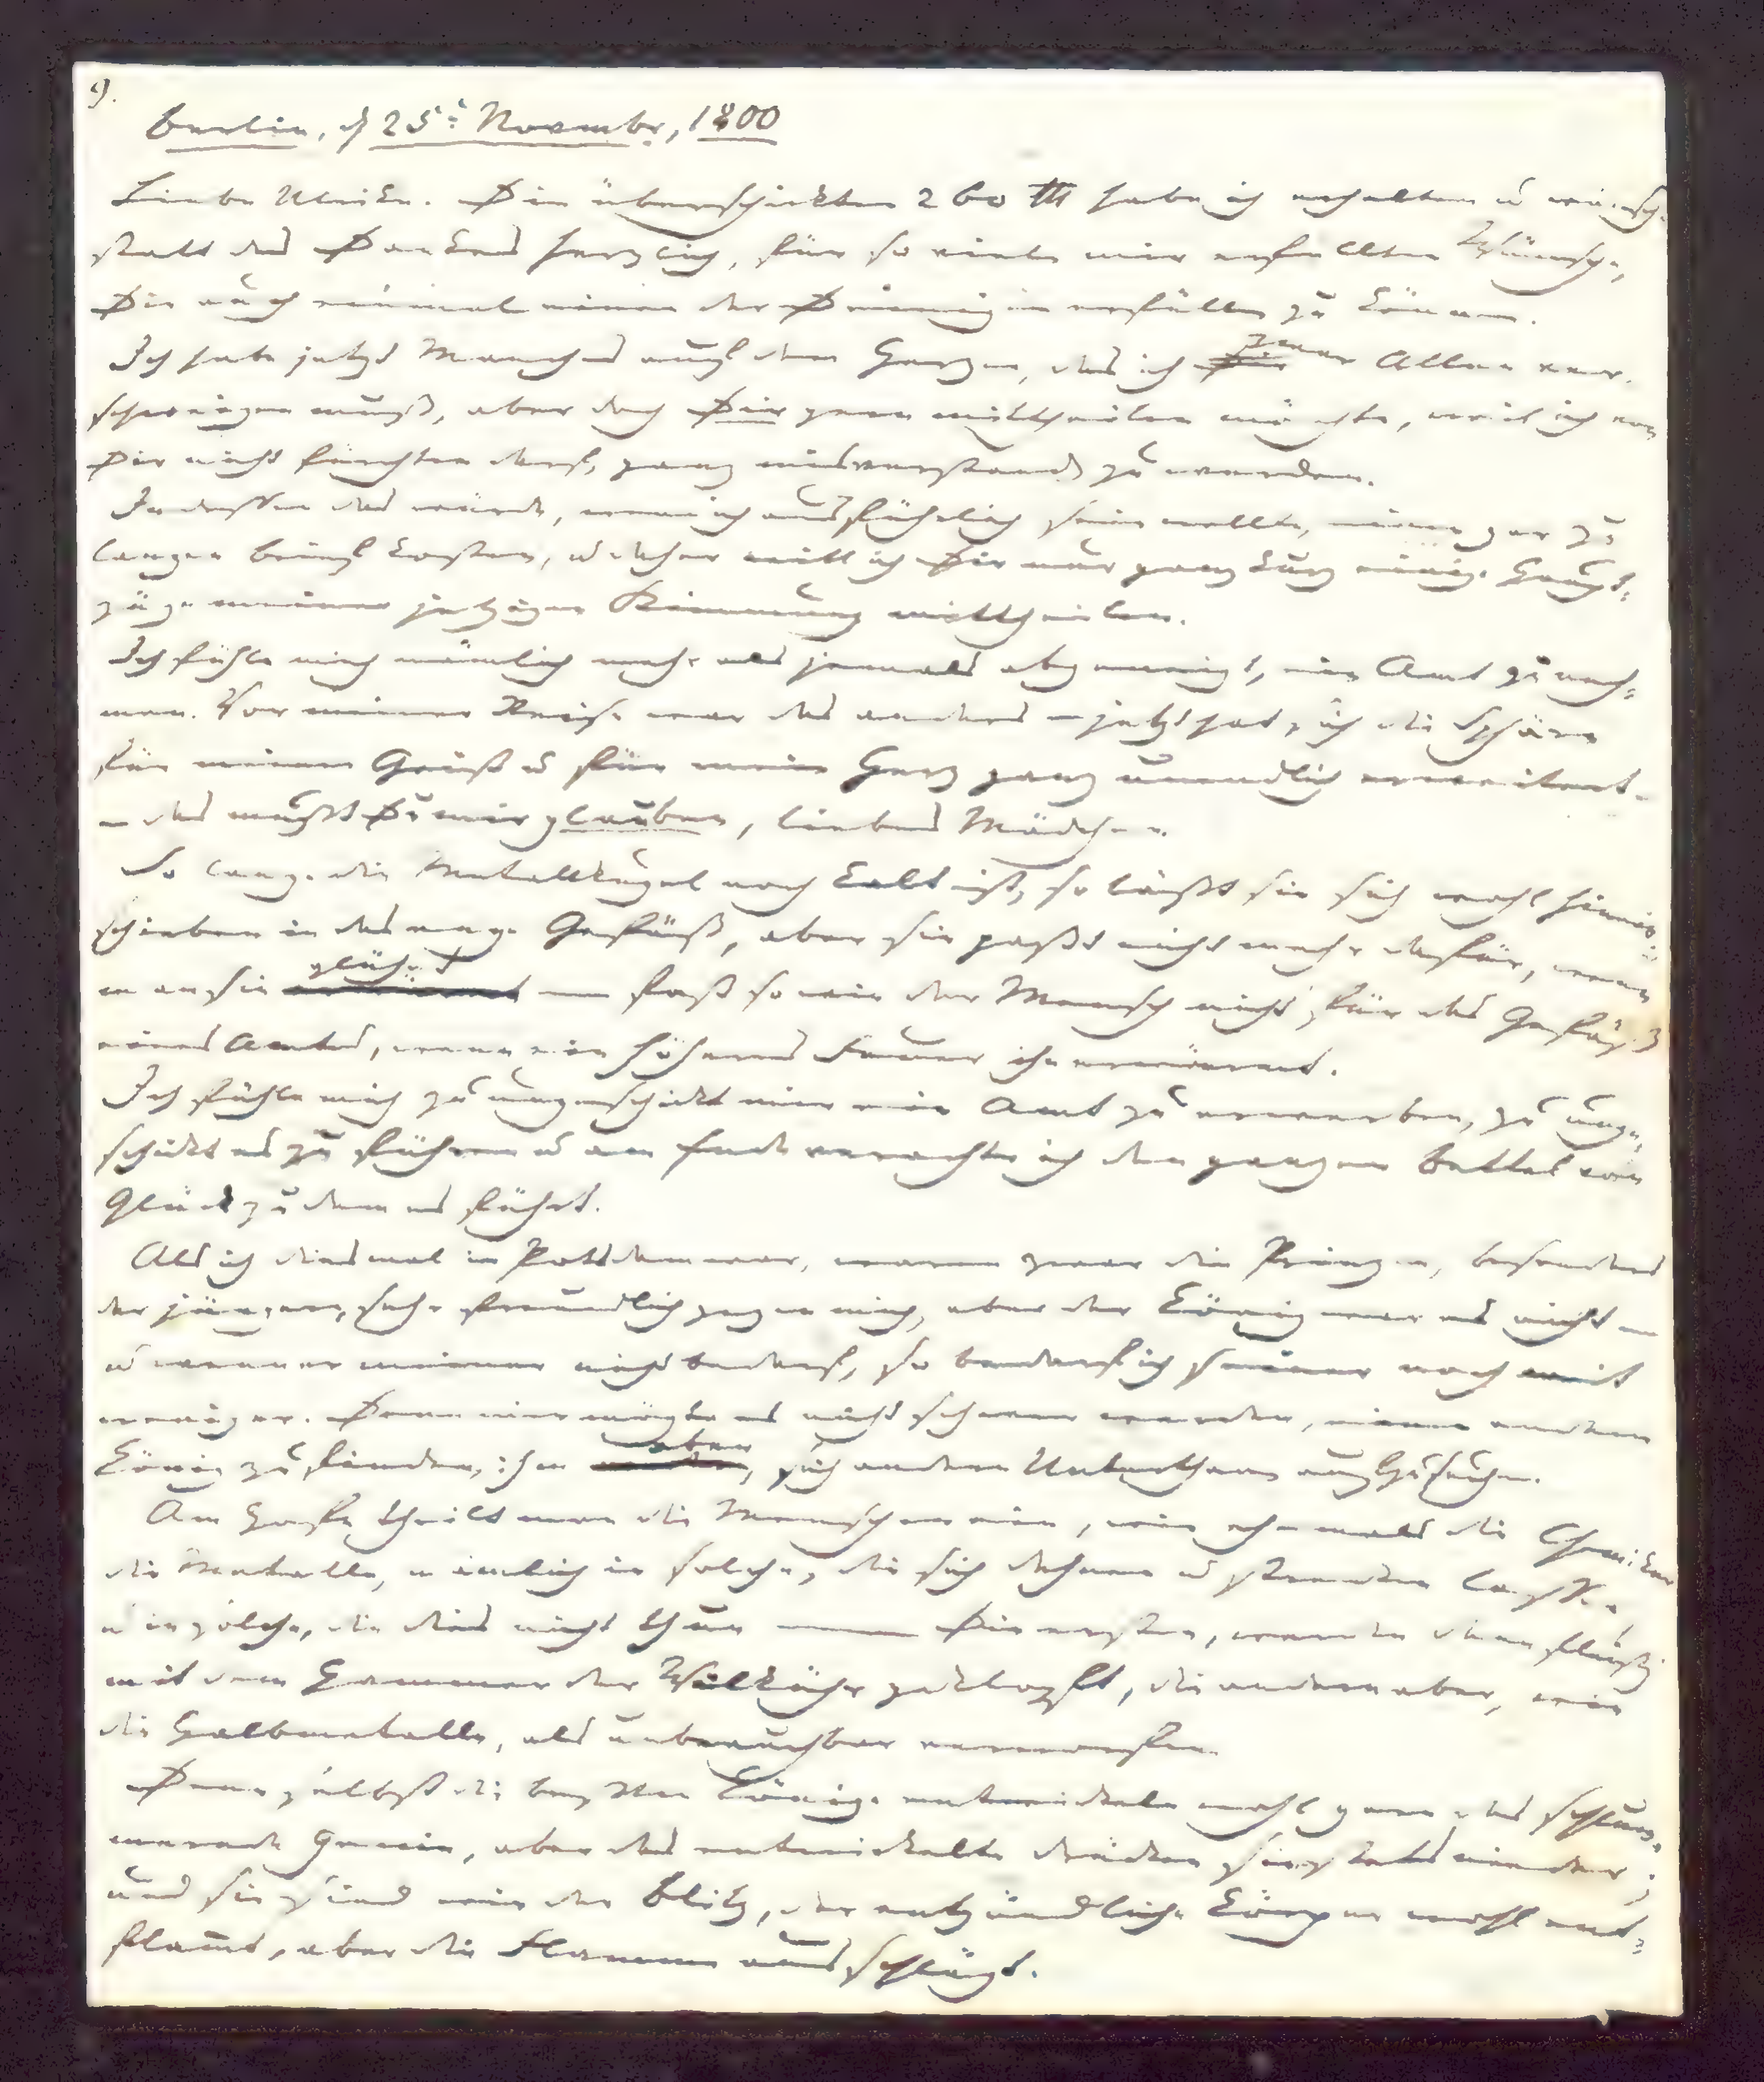 9.
Berlin, d 25t Novembr, 1800
Liebe Ulrike. Die überschickten 260 Rth habe ich erhalten u wünsche
statt des Dankes herzlich, für so viele mir erfüllten Wünsche,
Dir auch einmal einen der Deinigen erfüllen zu können.
Ich habe jetzt Manches auf dem Herzen, das ich zwar Allen ver-
schweigen muß, aber doch Dir gern mittheilen möchte, weil ich von
Dir nicht fürchten darf, ganz misverstand zu werden.
Indessen das würde, wenn ich ausführlich sein wollte, einen gar zu
langen Brief kosten, u daher will ich Dir nur ganz kurz einige Haupt-
züge meiner jetzigen Stimmung mittheilen.
Ich fühle mich nämlich mehr als jemals abgeneigt, ein Amt zu neh-
men. Vor meiner Reise war das anders – jetzt hat sich die Sphäre
für meinen Geist u für mein Herz ganz unendlich erweitert
– das mußt Du mir glauben, liebes Mädchen.
So lange die Metallkugel noch kalt ist, so läßt sie sich wohl hinein-
schieben in das enge Gefäß, aber sie paßt nicht mehr dafür, wenn
man sie glühet — fast so wie der Mensch nicht für das Gefäß
eines Amtes, wenn ein höheres Feuer ihn erwärmt.
Ich fühle mich zu ungeschickt mir ein Amt zu erwerben, zu unge-
schickt es zu führen u am Ende verachte ich den ganzen Bettel von
Glück zu dem es führt.
Als ich diesmal in Potsdam war, waren zwar die Prinzen, besonders
der jüngere, sehr freundlich gegen mich, aber der König war es nicht –
u wenn er meiner nicht bedarf, so bedarf ich seiner noch weit
weniger. Denn mir mögte es nicht schwer werden, einen andern
König zu finden, ihm aber, sich andere Unterthanen aufzusuchen.
Am Hofe theilt man die Menschen ein, wie ehemals die Chemiker
die Metalle, nämlich in solche, die sich dehnen u strecken lassen,
u in solche, die dies nicht thun — Die ersten, werden dann fleißig
mit dem Hammer der Wilkühr geklopft, die andern aber, wie
die Halbmetalle, als unbrauchbar verworfen.
Denn selbst die besten Könige entwickeln wohl gern das schlum-
mernde Genie, aber das entwickelte drücken sie stets nieder;
und sie sind wie der Blitz, der entzündliche Körper wohl ent-
flamt, aber die Flamme ausschlägt.